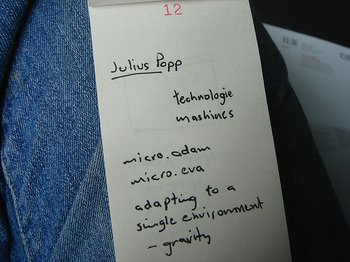 12
Julius Popp
technologie
mashines
micro.adam
micro.eva
adapting to a
single environment
- gravity